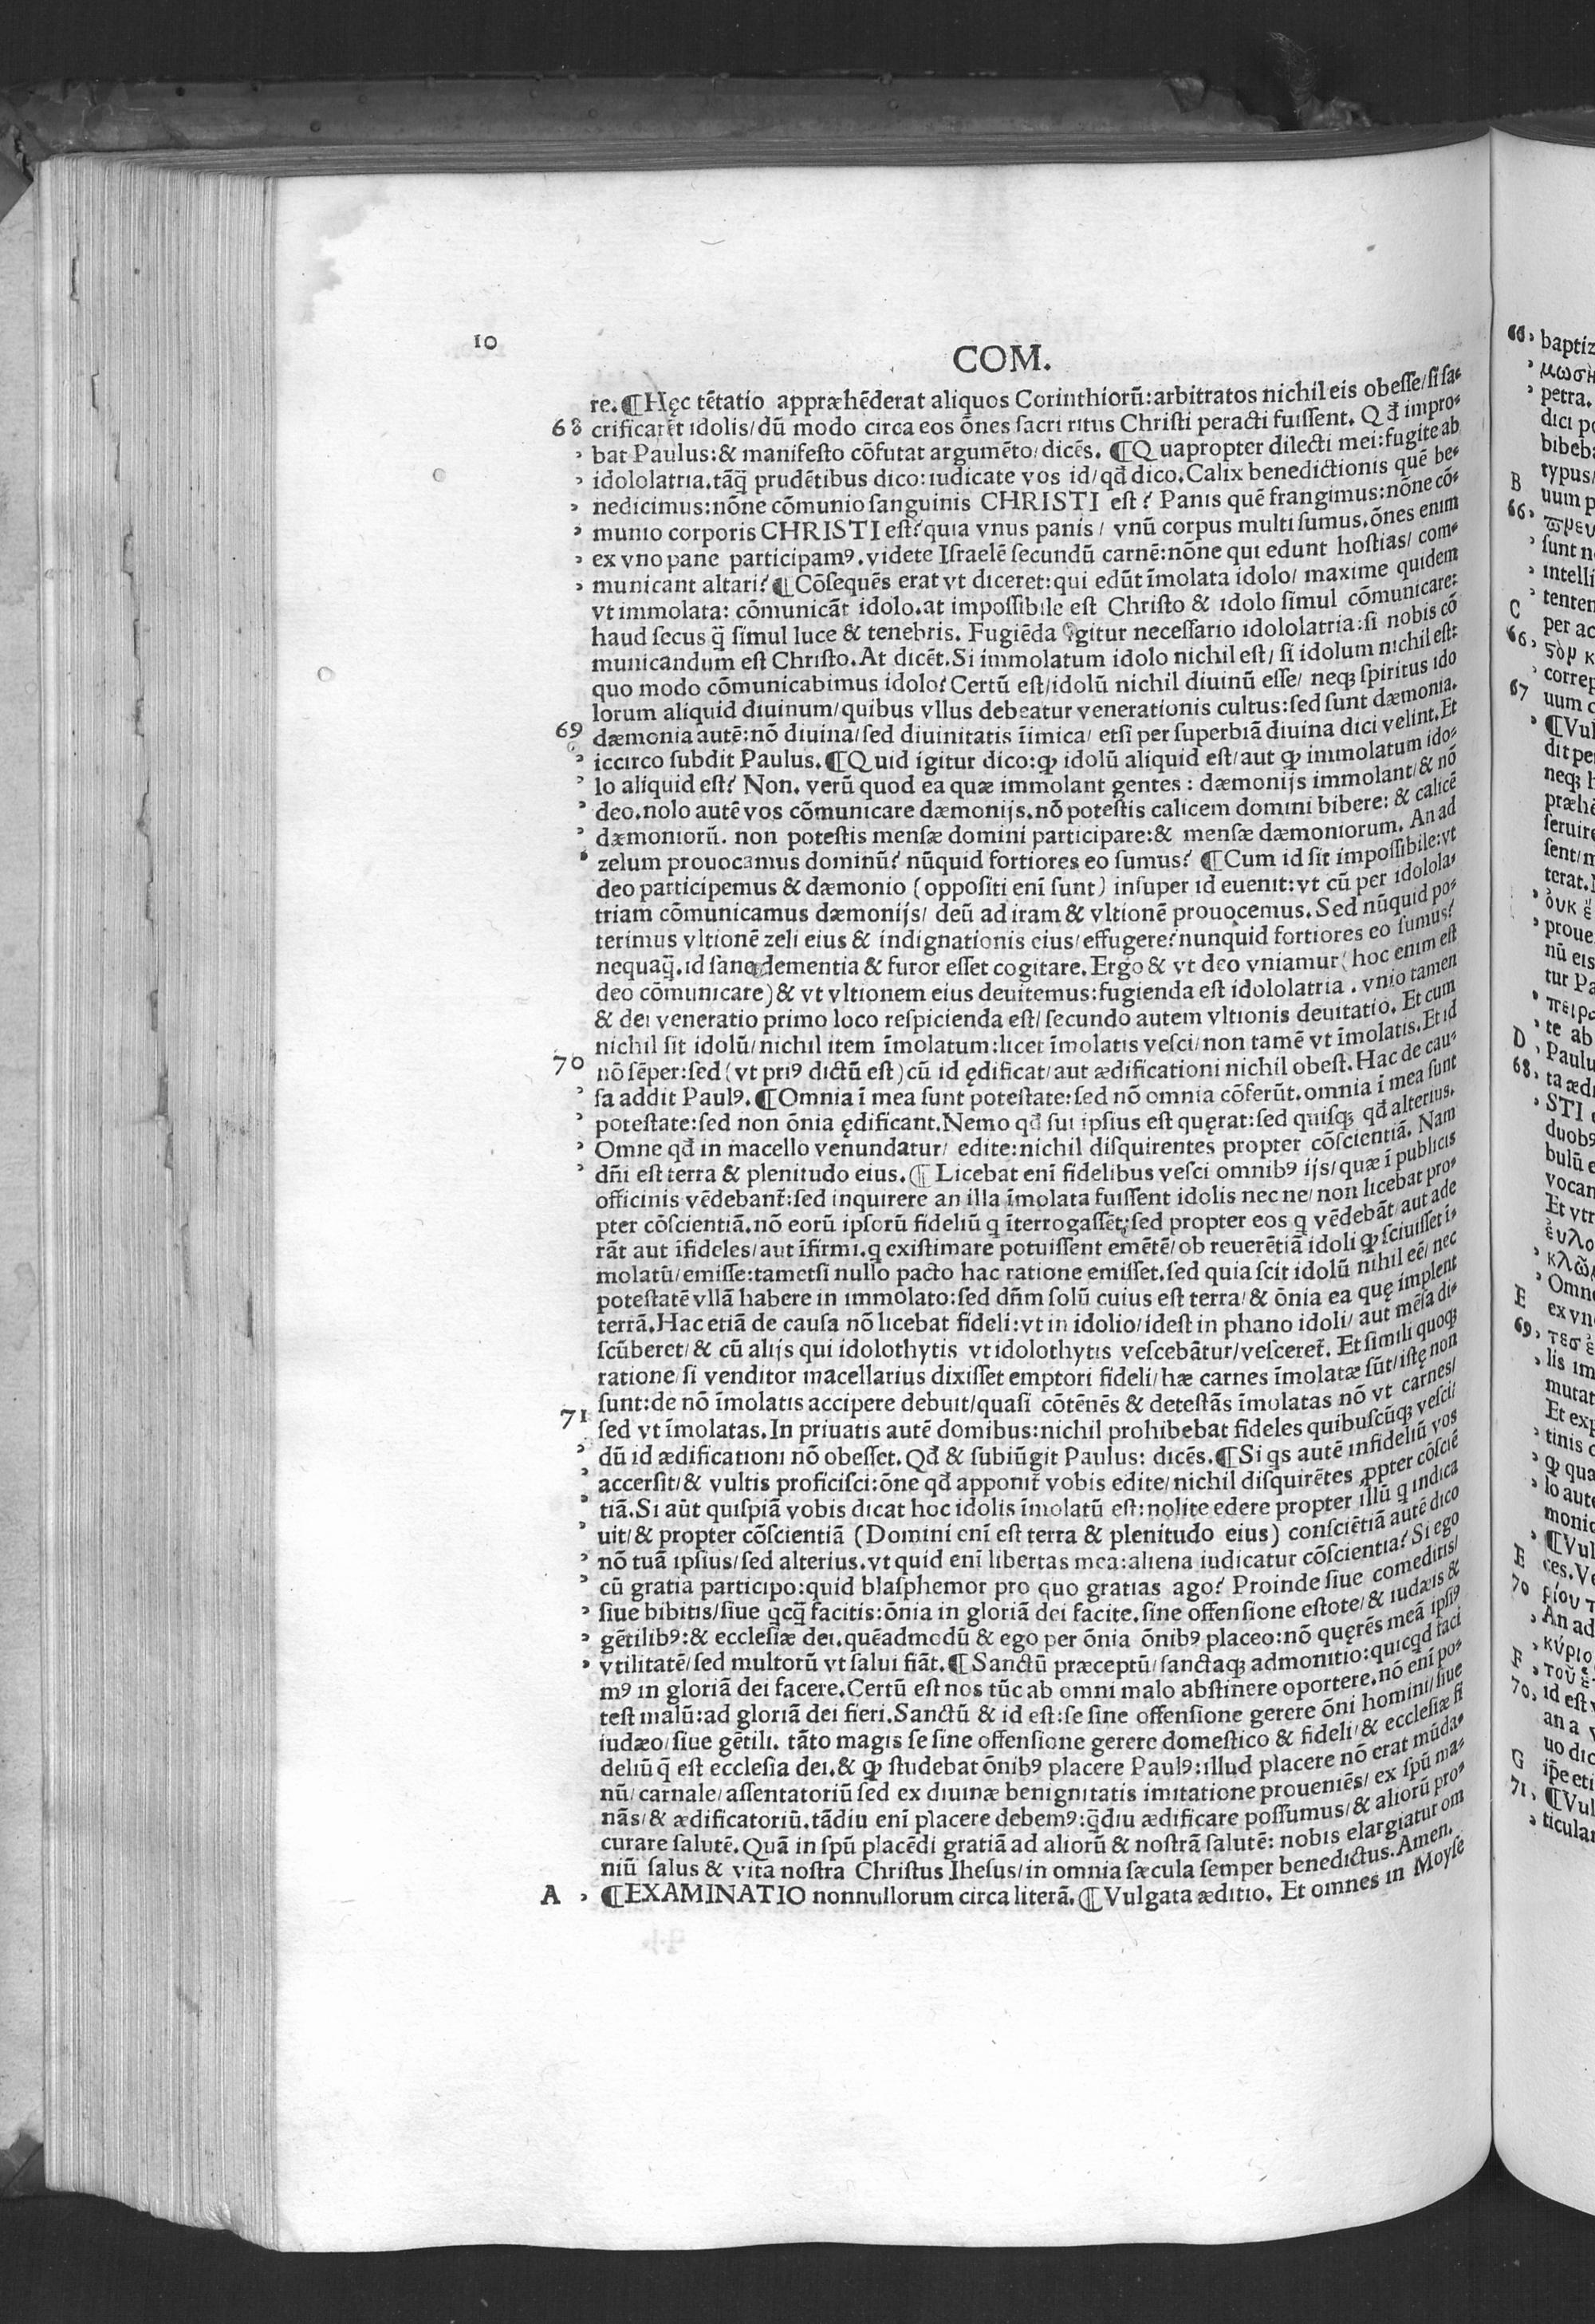 10
COM.
re.¶Hęc tẽtatio appræhẽderat aliquos Corinthiorũ:arbitratos nichil eis obeſſe/ſi ſa-
68 crificarẽt idolis/dũ modo circa eos õnes ſacri ritus Chriſti peracti fuiſſent. Qđ impro-
bat Paulus:& manifeſto cõfutat argumẽto/dicẽs. ¶Quapropter dilecti mei:fugite ab
idololatria.tãq̃ prudẽtibus dico:iudicate vos id/qđ dico.Calix benedictionis quẽ be-
nedicimus:nõne cõmunio ſanguinis CHRISTI eſt? Panis quẽ frangimus:nõne cõ-
munio corporis CHRISTI eſt?quia vnus panis/ vnũ corpus multi ſumus.õnes enim
ex vno pane participamꝰ.videte Iſraelẽ ſecundũ carnẽ:nõne qui edunt hoſtias/ com-
municant altari?¶Cõſequẽs erat vt diceret:qui edũt ĩmolata idolo/ maxime quidem
vt immolata: cõmunicãt idolo.at impoſſibile eſt Chriſto & idolo ſimul cõmunicare:
haud ſecus q̃ ſimul luce & tenebris. Fugiẽda igitur neceſſario idololatria:ſi nobis cõ
municandum eſt Chriſto.At dicẽt.Si immolatum idolo nichil eſt/ ſi idolum nichil eſt:
quo modo cõmunicabimus idolo?Certũ eſt/idolũ nichil diuinũ eſſe/ neqꝫ ſpiritus ido
lorum aliquid diuinum/quibus vllus debeatur venerationis cultus:ſed ſunt dæmonia.
69 dæmonia autẽ:nõ diuina/ſed diuinitatis ĩimica/ etſi per ſuperbiã diuina dici velint.Et
iccirco ſubdit Paulus.¶Quid igitur dico:ꝙ idolũ aliquid eſt/aut ꝙ immolatum ido-
lo aliquid eſt? Non. verũ quod ea quæ immolant gentes : dæmonijs immolant/& nõ
deo.nolo autẽ vos cõmunicare dæmonijs.nõ poteſtis calicem domini bibere: & calicẽ
dæmoniorũ. non poteſtis menſæ domini participare:& menſæ dæmoniorum. An ad
zelum prouocamus dominũ? nũquid fortiores eo ſumus? ¶Cum id ſit impoſſibile:vt
deo participemus & dæmonio (oppoſiti enĩ ſunt) inſuper id euenit:vt cũ per idolola-
triam cõmunicamus dæmonijs/ deũ ad iram & vltionẽ prouocemus.Sed nũquid po-
terimus vltionẽ zeli eius & indignationis eius/effugere?nunquid fortiores eo ſumus?
nequaq̃.id ſane dementia & furor eſſet cogitare.Ergo & vt deo vniamur(hoc enim eſt
deo cõmunicare)& vt vltionem eius deuitemus:fugienda eſt idololatria . vnio tamen
& dei veneratio primo loco reſpicienda eſt/ ſecundo autem vltionis deuitatio. Et cum
nichil ſit idolũ/nichil item ĩmolatum:licet ĩmolatis veſci/non tamẽ vt ĩmolatis.Et id
70 nõ ſẽper:ſed(vt priꝰ dictũ eſt)cũ id ędificat/aut ædificationi nichil obeſt.Hac de cau-
ſa addit Paulꝰ.¶Omnia ĩ mea ſunt poteſtate:ſed nõ omnia cõferũt.omnia ĩ mea ſunt
poteſtate:ſed non õnia ędificant.Nemo qđ ſui ipſius eſt quęrat:ſed quiſqꝫ qđ alterius.
Omne qđ in macello venundatur/ edite:nichil diſquirentes propter cõſcientiã. Nam
dñi eſt terra & plenitudo eius.¶ Licebat enĩ fidelibus veſci omnibꝰ ijs/quæ ĩ publicis
officinis vẽdebant̃:ſed inquirere an illa ĩmolata fuiſſent idolis nec ne/non licebat pro-
pter cõſcientiã.nõ eorũ ipſorũ fideliũ q ĩterrogaſſẽt:ſed propter eos q vẽdebãt/aut ade
rãt aut ĩfideles/aut ĩfirmi.q exiſtimare potuiſſent emẽtẽ/ob reuerẽtiã idoli ꝙ ſciuiſſet ĩ-
molatũ/emiſſe:tametſi nullo pacto hac ratione emiſſet.ſed quia ſcit idolũ nihil eẽ/ nec
poteſtatẽ vllã habere in immolato:ſed dñm ſolũ cuius eſt terra/& õnia ea quę implent
terrã.Hac etiã de cauſa nõ licebat fideli:vt in idolio/ideſt in phano idoli/ aut mẽſa di-
ſcũberet/& cũ alijs qui idolothytis vt idolothytis veſcebãtur/veſceret̃. Et ſimili quoqꝫ
ratione ſi venditor macellarius dixiſſet emptori fideli/hæ carnes ĩmolatæ ſũt/iſtę non
ſunt:de nõ ĩmolatis accipere debuit/quaſi cõtẽnẽs & deteſtãs ĩmolatas nõ vt carnes/
71 ſed vt ĩmolatas.In priuatis autẽ domibus:nichil prohibebat fideles quibuſcũqꝫ veſci/
dũ id ædificationi nõ obeſſet.Qđ & ſubiũgit Paulus: dicẽs.¶Si qs autẽ infideliũ vos
accerſit/& vultis proficiſci:õne qđ apponit̃ vobis edite/nichil diſquirẽtes ꝓpter cõſciẽ
tiã.Si aũt quiſpiã vobis dicat hoc idolis ĩmolatũ eſt:nolite edere propter illũ q indica
uit/& propter cõſcientiã (Domini enĩ eſt terra & plenitudo eius) conſciẽtiã autẽ dico
nõ tuã ipſius/ſed alterius.vt quid enĩ libertas mea:aliena iudicatur cõſcientia? Si ego
cũ gratia participo:quid blaſphemor pro quo gratias ago? Proinde ſiue comeditis/
ſiue bibitis/ſiue qcq̃ facitis:õnia in gloriã dei facite.ſine offenſione eſtote/& iudæis &
gẽtilibꝰ:& eccleſiæ dei.quẽadmodũ & ego per õnia õnibꝰ placeo:nõ quęrẽs meã ipſiꝰ
vtilitatẽ/ſed multorũ vt ſalui fiãt.¶Sanctũ præceptũ/ſanctaqꝫ admonitio:quicqd faci
mꝰ in gloriã dei facere.Certũ eſt nos tũc ab omni malo abſtinere oportere.nõ enĩ po-
teſt malũ:ad gloriã dei fieri.Sanctũ & id eſt:ſe ſine offenſione gerere õni homini/ſiue
iudæo/ſiue gẽtili. tãto magis ſe ſine offenſione gerere domeſtico & fideli/& eccleſiæ fi
deliũ q̃ eſt eccleſia dei.& ꝙ ſtudebat õnibꝰ placere Paulꝰ:illud placere nõ erat mũda-
nũ/carnale/aſſentatoriũ ſed ex diuinæ benignitatis imitatione proueniẽs/ ex ſpũ ma-
nãs/& ædificatoriũ.tãdiu enĩ placere debemꝰ:q̃diu ædificare poſſumus/& aliorũ pro-
curare ſalutẽ.Quã in ſpũ placẽdi gratiã ad aliorũ & noſtrã ſalutẽ: nobis elargiatur om
niũ ſalus & vita noſtra Chriſtus Iheſus/in omnia ſæcula ſemper benedictus.Amen.
A ¶EXAMINATIO nonnullorum circa literã.¶Vulgata æditio. Et omnes in Moyſe